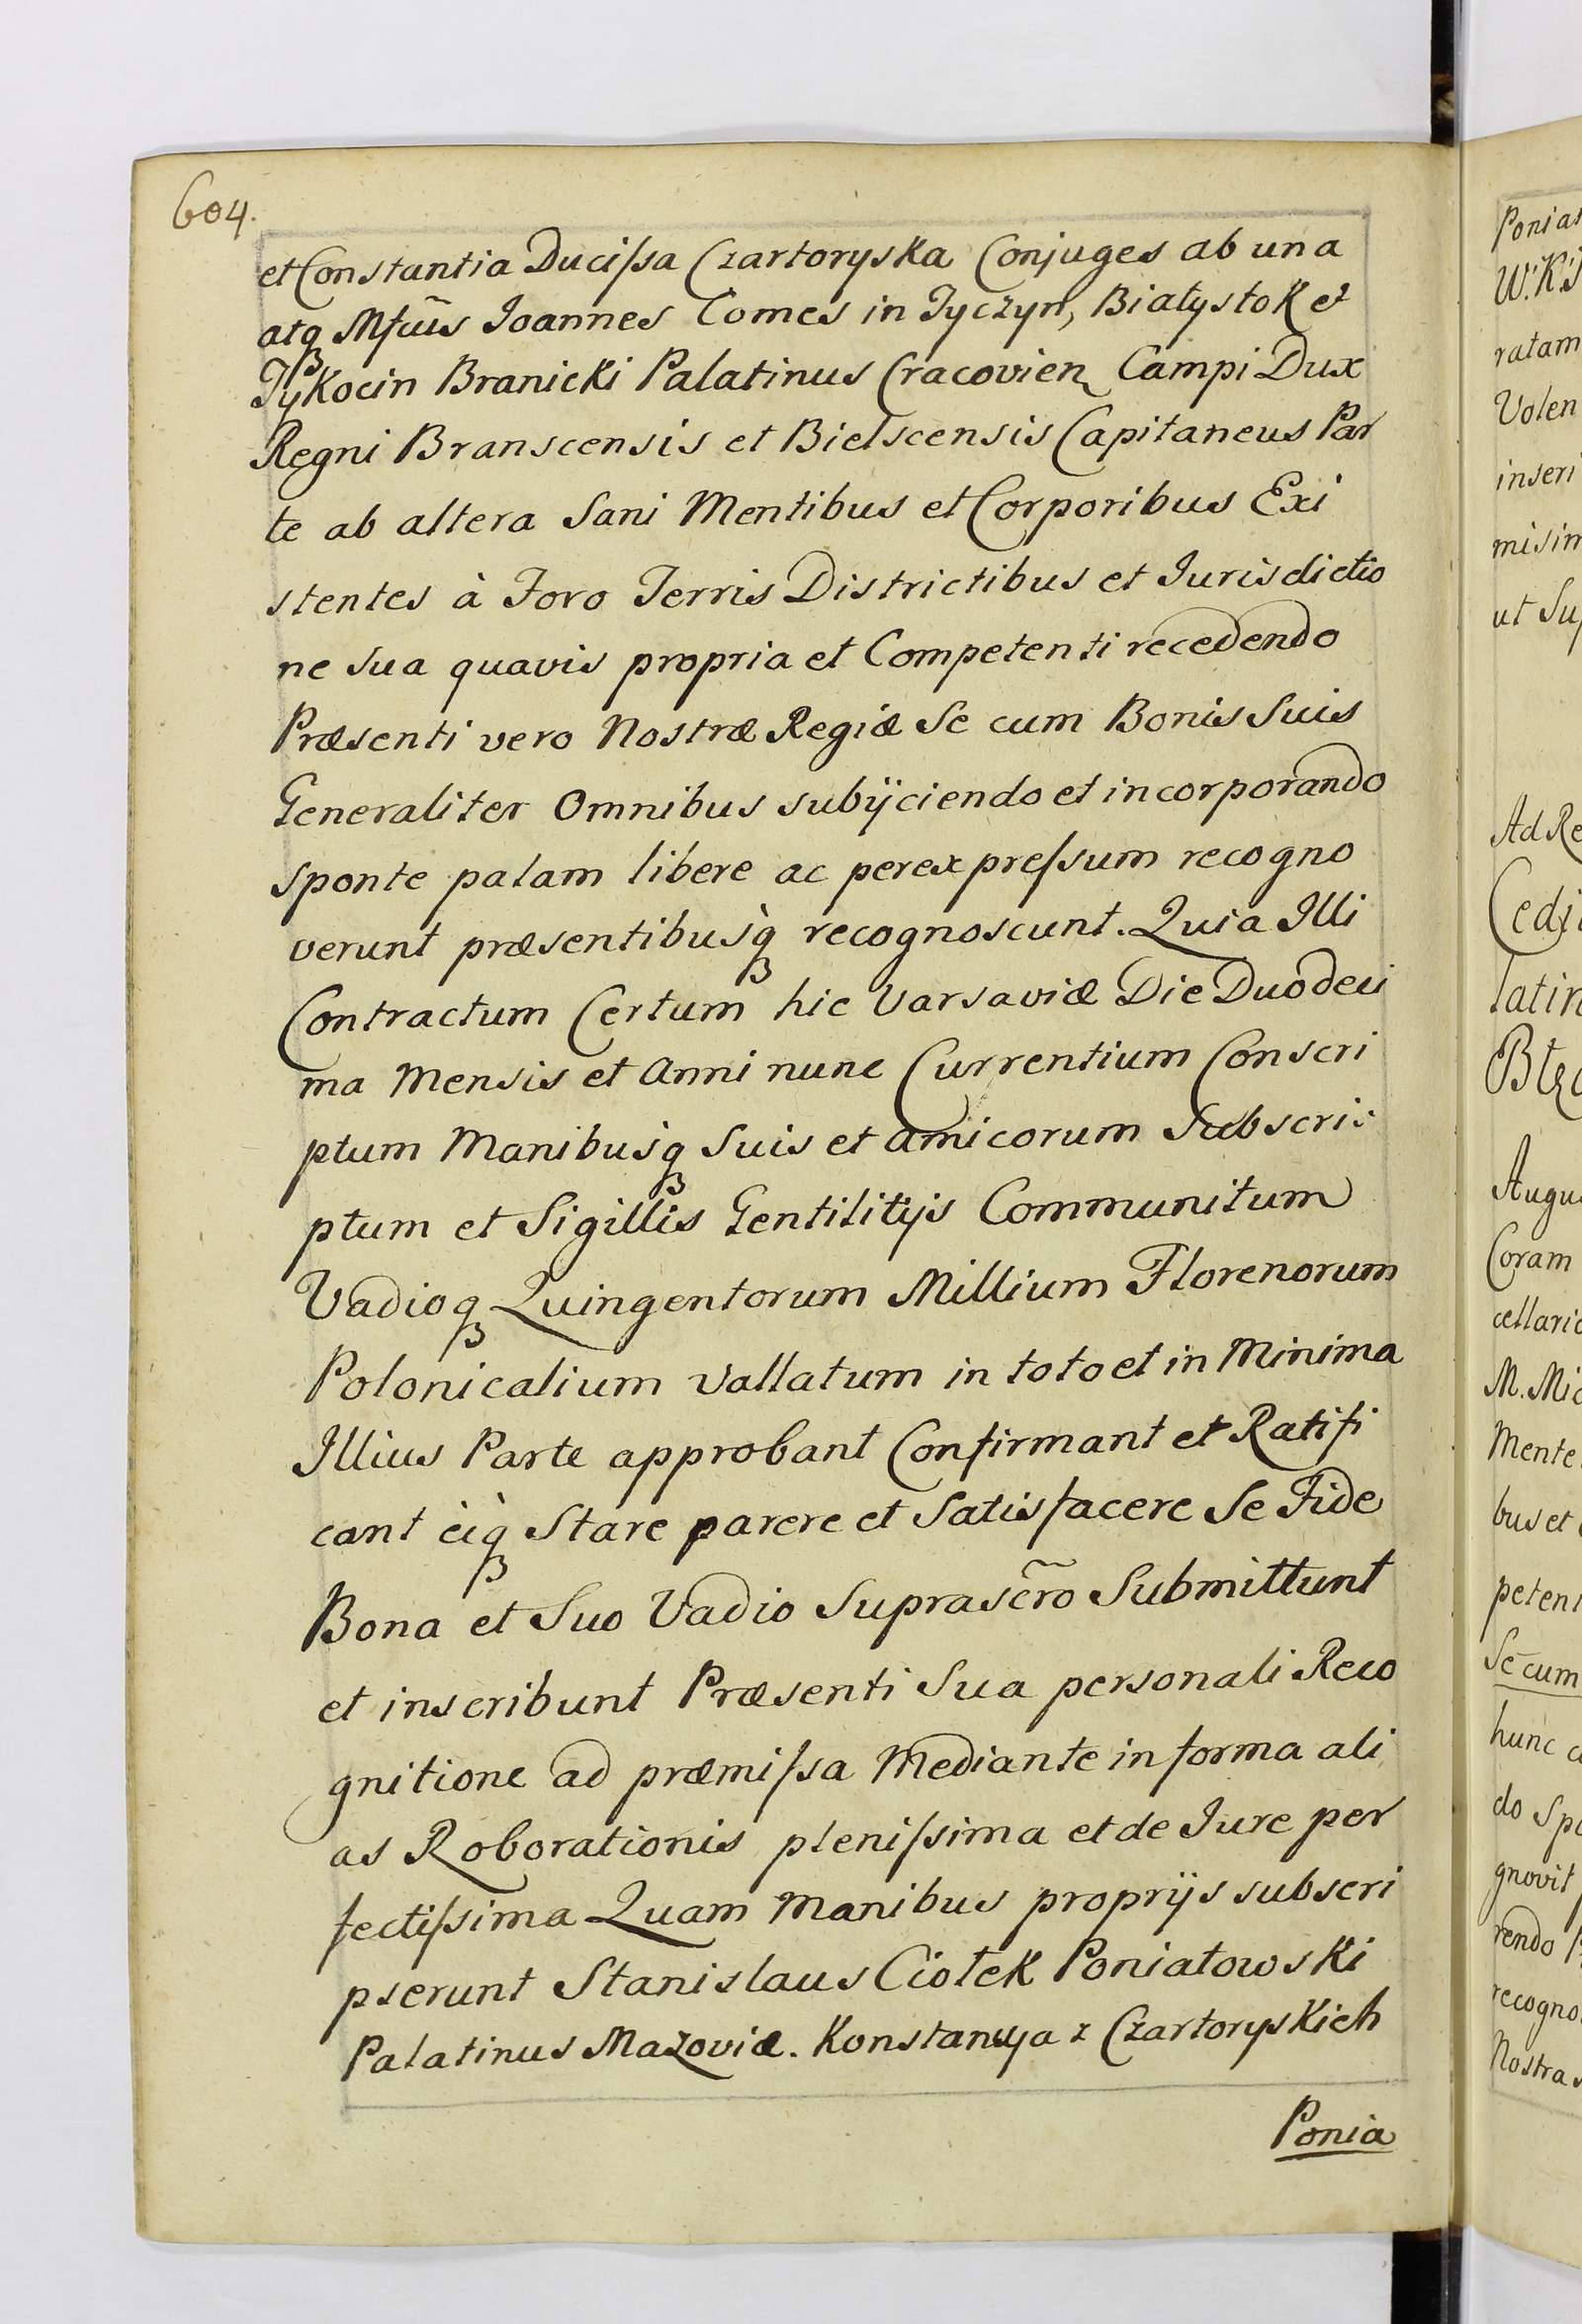 604.
et Constantia Ducissa Czartoryska Conjuges ab una
atq Mfcus Joannes Comes in Tyczyn, Białystok et
Tykocin Branicki Palatinus Cracovien Campi Dux
Regni Branscensis et Bielscensis Capitaneus Par
te ab altera Sani Mentibus et Corporibus Exi
stentes à Foro Terris Districtibus et Jurisdictio
ne sua quavis propria et Competenti recedendo
Præsenti vero Nostræ Regiæ Se cum Bonis Suis
Generaliter Omnibus subijciendo et incorporando
sponte palam libere ac per expressum recogno
verunt præsentibusq recognoscunt. Quia Illi
Contractum Certum hic Varsaviæ Die Duodeci
ma Mensis et Anni nunc Currentium Conscri
ptum Manibusq Suis et Amicorum Subscri
ptum et Sigillis Gentilitijs Communitum
Vadioq Quingentorum Millium Florenorum
Polonicalium vallatum in toto et in Minima
Illius Parte approbant Confirmant et Ratifi
cant eiq Stare parere et Satisfacere Se Fide
Bona et Suo Vadio Suprascro Submittunt
et inscribunt Præsenti Sua personali Reco
gnitione ad præmissa Mediante in forma ali
as Roborationis plenissima et de Jure per
fectissima Quam Manibus proprijs subscri
pserunt Stanislaus Ciołek Poniatowski
Palatinus Mazoviæ. Konstancya z Czartoryskich
Ponia
Poniat
W.K.J
ratam
Volen
inseri
misim
ut Sup
Ad Re
Cedi
latin
Btzc
Augu
Coram
cellaric
M. Mic
Mente
bus et
petent
Se cum
hunc a
do Spo
gnovit
rendo
recogno
Nostra